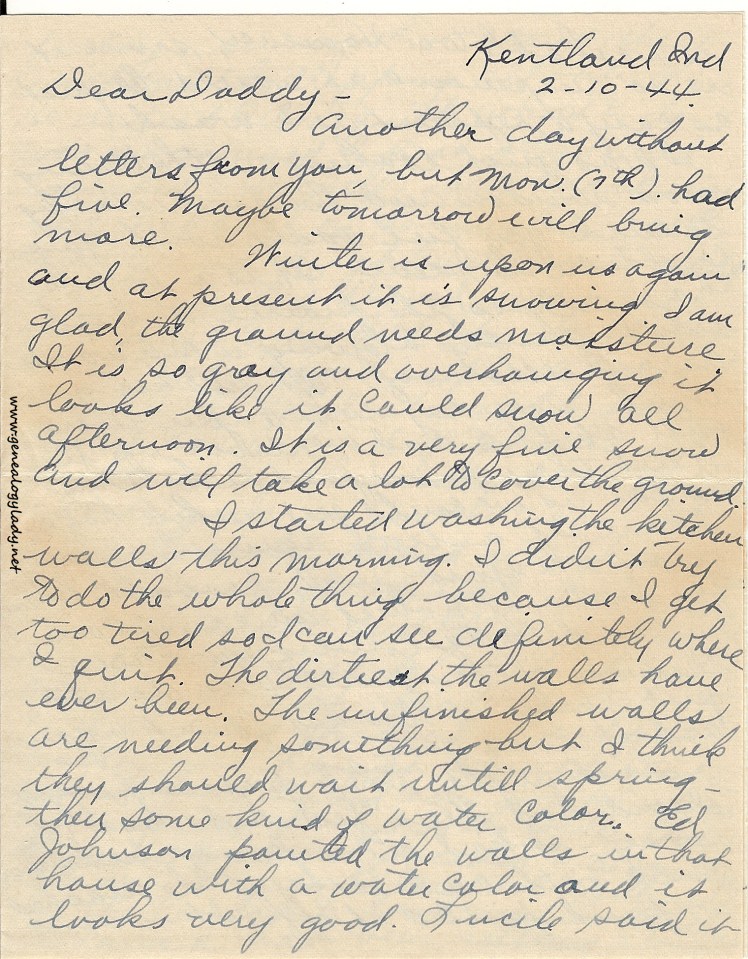 Kentland Ind
2-10-44.
Dear Daddy-
Another day without
letters from you, but Mon. (7th). had
five. Maybe tomorrow will bring
more. Winter is upon us again
and at present it is snowing. I am
glad, the ground needs moisture
It is so gray and overhanging it
looks like it could snow all
afternoon. It is a very fine snow
and will take a lot to cover the ground.
I started washing the kitchen
walls this morning. I didn't try
to do the whole thing because I get
too tired so I can see definitely where
I quit. The dirtiest the walls have
ever been. The unfinished walls
are needing something but I think
they should wait untill spring-
then some kind of water color. Ed
Johnson painted the walls in that
house with a water color and it
looks very good. Lucile said it
www.genealogylady.net